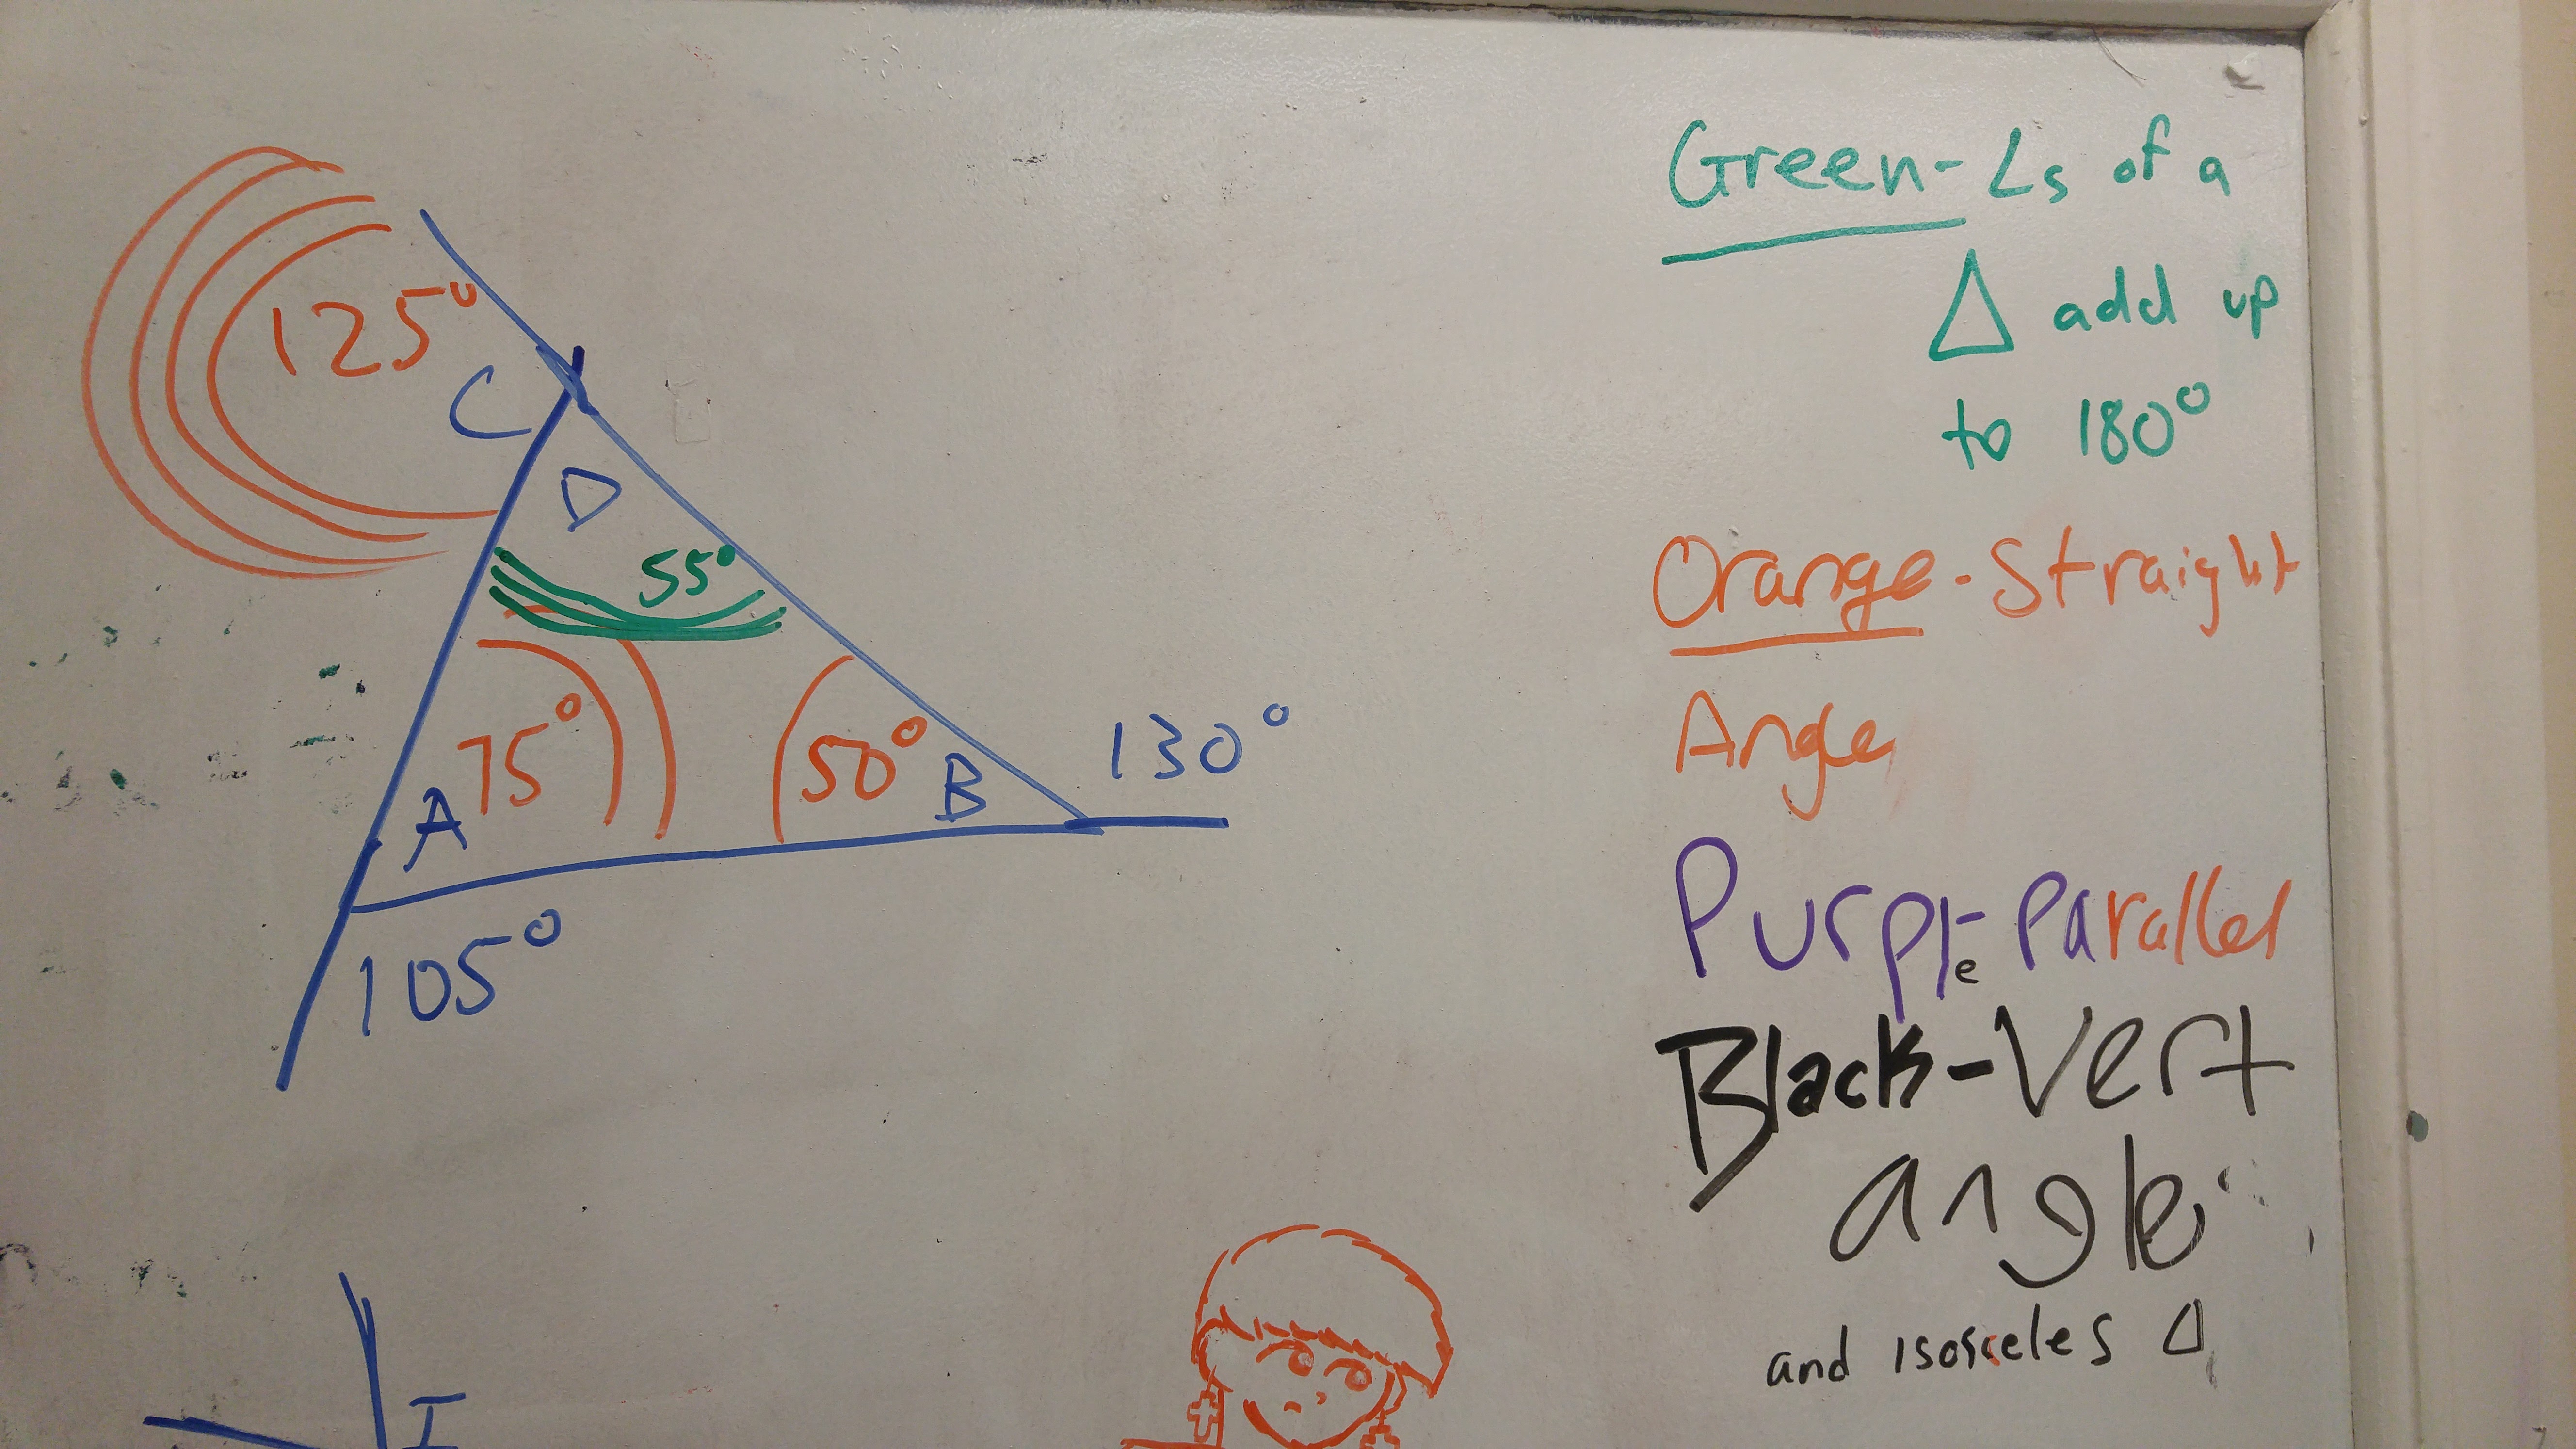 125°
C
D
55°
75°
50°
A
B
130°
105°
I
Green - ∠s of a
△ add up
to 180°
Orange - Straight
Angle
Purple - Parallel
Black - Vert
angle
and isosceles △